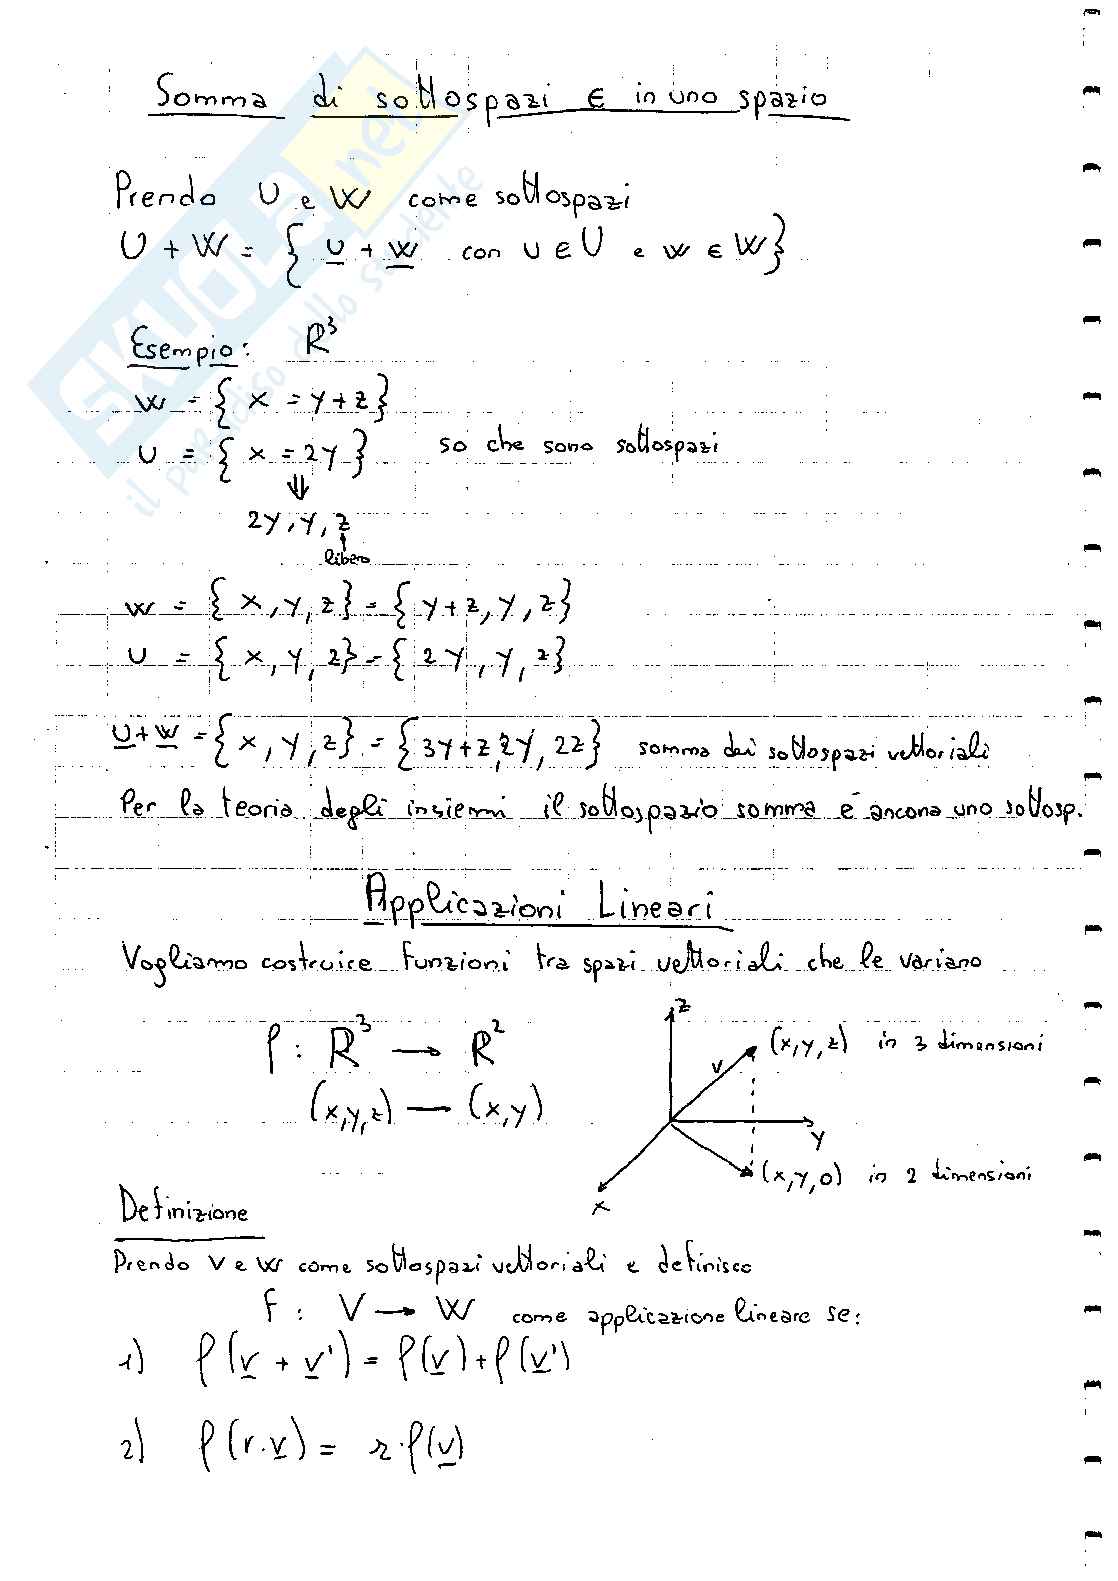 Somma di sottospazi ∈ in uno spazio
Prendo U e W come sottospazi
U + W = { u + w con u ∈ U e w ∈ W }
Esempio: R³
W = { x = y+z }
U = { x = 2y } so che sono sottospazi
⇓
2y, y, z
↑
libero
W = { x, y, z } = { y+z, y, z }
U = { x, y, z } = { 2y, y, z }
U+W = { x, y, z } = { 3y+z, 2y, 2z } somma dei sottospazi vettoriali
Per la teoria degli insiemi il sottospazio somma è ancora uno sottosp.
Applicazioni Lineari
Vogliamo costruire funzioni tra spazi vettoriali che le variano
f : R³ → R²
(x,y,z) — (x,y)
z
v
(x,y,z) in 3 dimensioni
y
(x,y,0) in 2 dimensioni
x
Definizione
Prendo V e W come sottospazi vettoriali e definisco
f : V → W come applicazione lineare se:
1) f(v + v') = f(v) + f(v')
2) f(r·v) = r·f(v)
SKUOLA.net
il paradiso dello studente